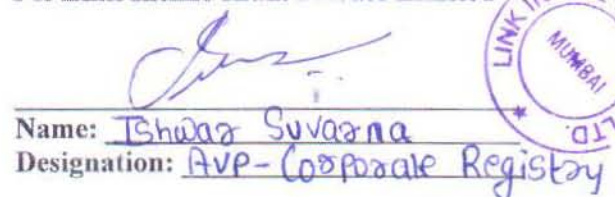 Name: Ishwar Suvarna
Designation: AVP- Corporate Registry
LINK IN
MUMBAI
LTD.